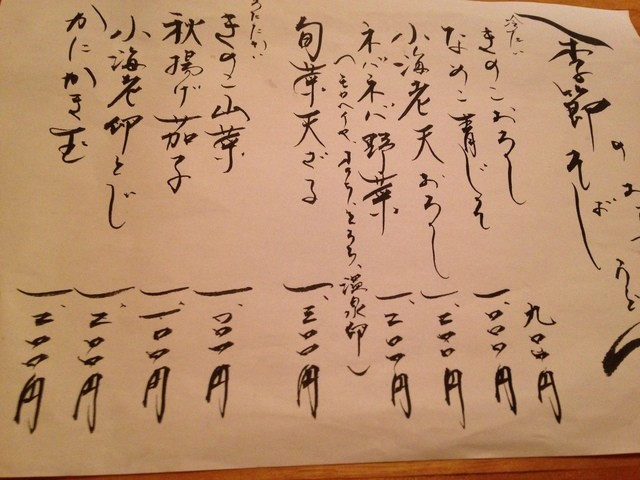 季節
冷たい
きのこおろし 九〇〇円
なめこ青じそ 一、〇〇〇円
小海老天おろし 一、二〇〇円
ネバネバ野菜 一、二〇〇円
(モロヘイヤ、オクラ、とろろ、温泉卵)
旬菜天ざる 一、三〇〇円
あたたかい
きのこ山菜 一、〇〇〇円
秋揚げ茄子 一、一〇〇円
小海老卵とじ 一、二〇〇円
かにかき玉 一、二〇〇円